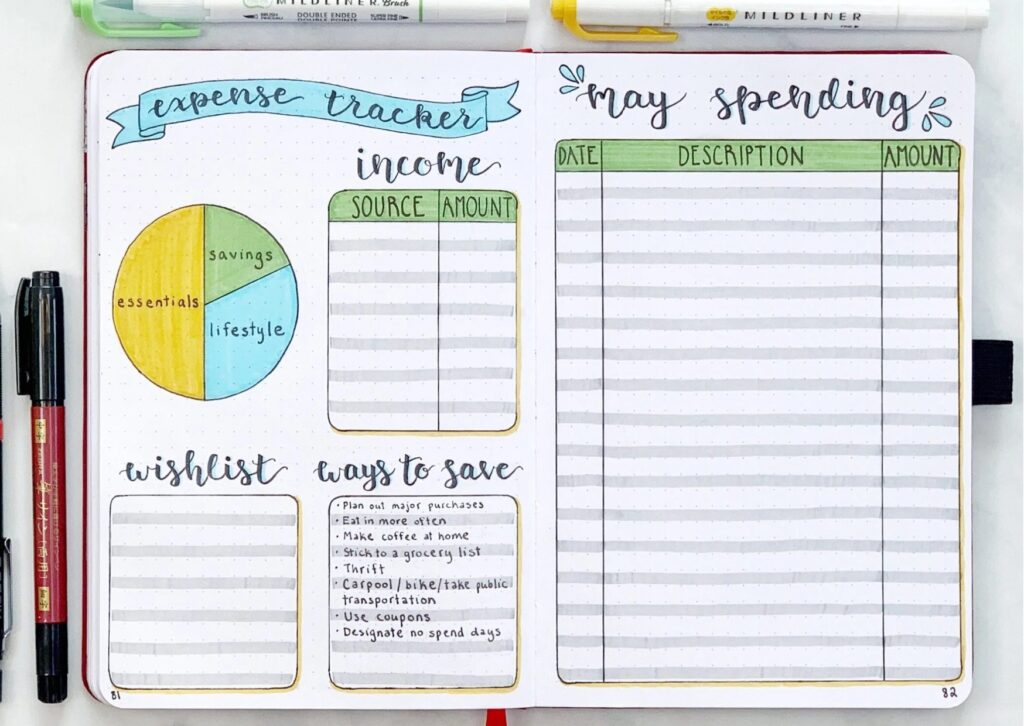 MILDLINER Brush
DOUBLE ENDED
MILDLINER
expense tracker
income
SOURCE AMOUNT
savings
essentials
lifestyle
wishlist
ways to save
• Plan out major purchases
• Eat in more often
• Make coffee at home
• Stick to a grocery list
• Thrift
• Carpool/bike/take public
transportation
• Use coupons
• Designate no spend days
81
may spending
DATE DESCRIPTION AMOUNT
82